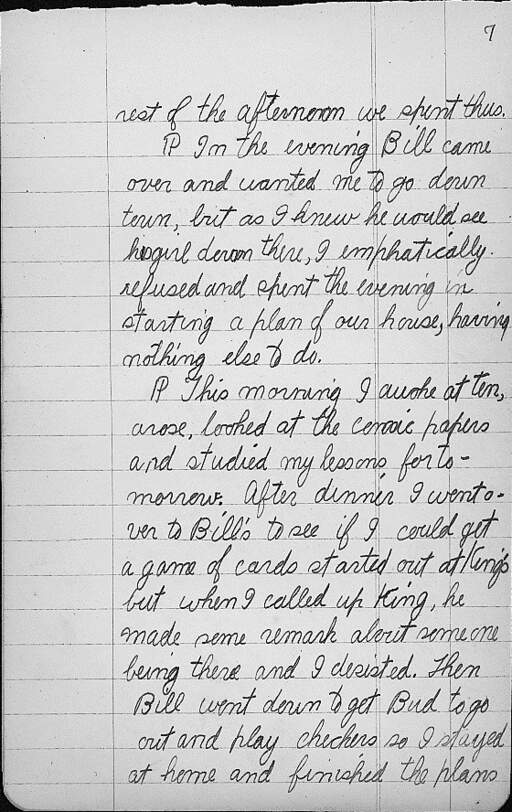 7
rest of the afternoon we spent thus.
¶ In the evening Bill came
over and wanted me to go down
town, but as I knew he would see
his girl down there, I emphatically
refused and spent the evening in
starting a plan of our house, having
nothing else to do.
¶ This morning I awoke at ten,
arose, looked at the comic papers
and studied my lessons for to-
morrow. After dinner I went o-
ver to Bill's to see if I could get
a game of cards started out at King's
but when I called up King, he
made some remark about some one
being there and I desisted. Then
Bill went down to get Bud to go
out and play checkers so I stayed
at home and finished the plans